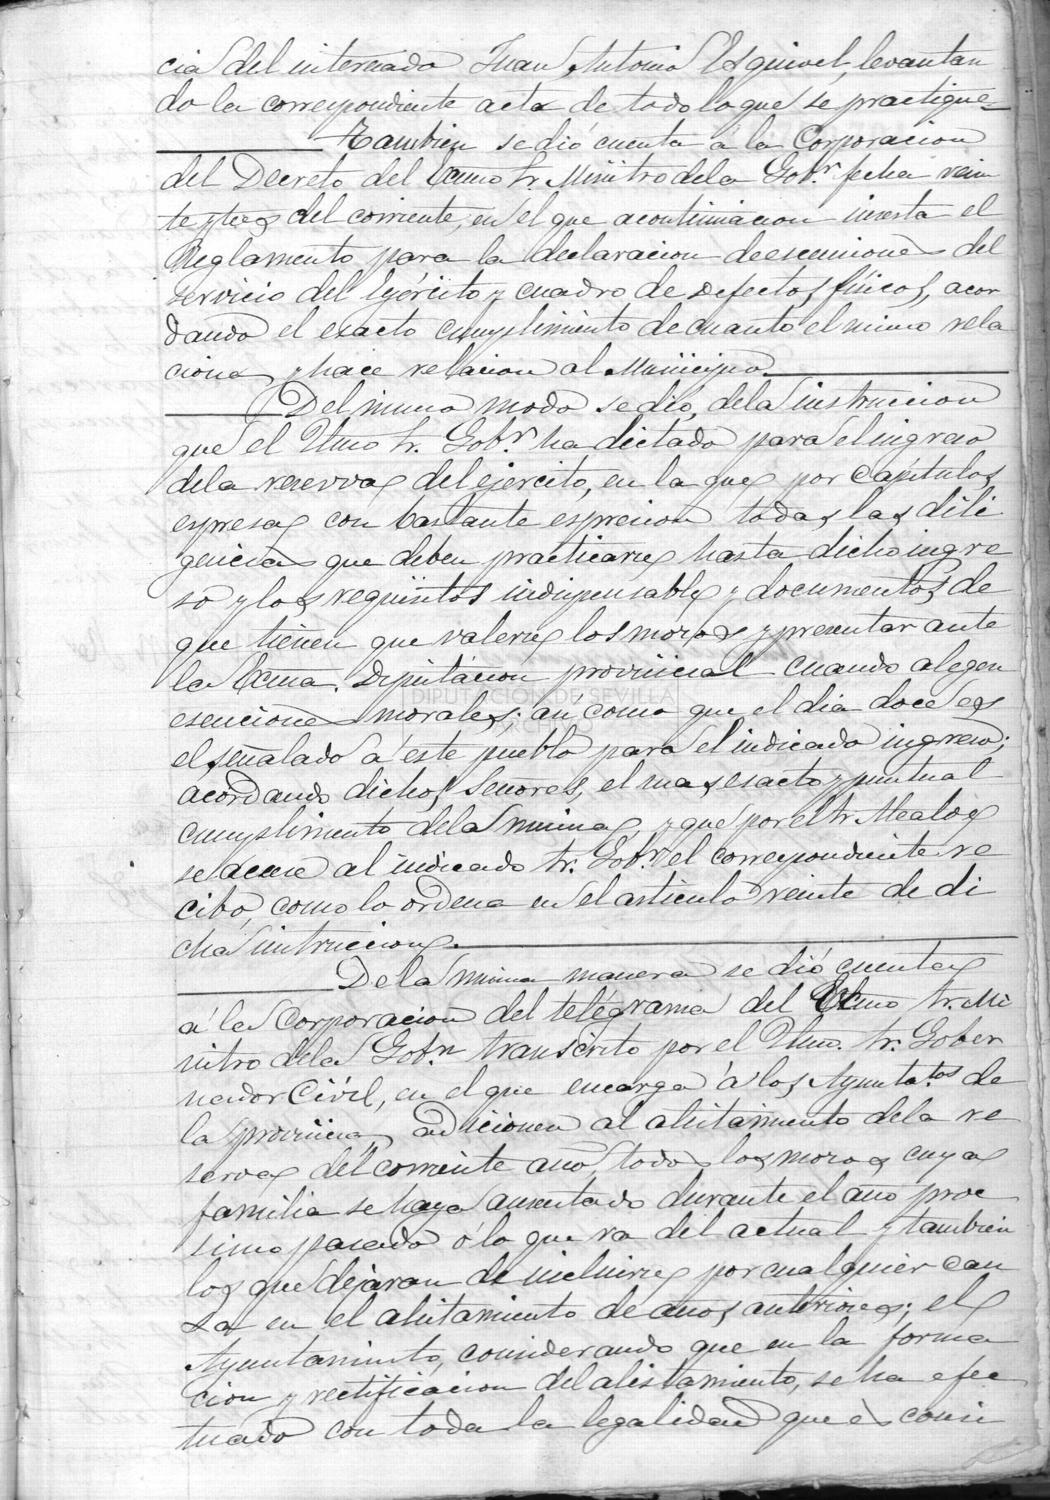 cia del interesado Juan Antonio Esquivel, levantan
do la correspondiente acta de todo lo que se practique
Tambien se dió cuenta á la Corporacion
del Decreto del Excmo Sr Ministro de la Gobn. fecha vein
te y tres del corriente, en el que acontinuacion inserta el
Reglamento para la declaracion de esenciones del
servicio del Ejército y cuadro de defectos físicos, acor
dando el esacto cumplimiento de cuanto el mismo rela
ciona y hace relacion al Municipio.
Del mismo modo se dió, de la instruccion
que el Iltmo Sr. Gobr ha dictado para el ingreso
de la reserva del ejército, en la que por Capítulos
espresa con bastante espresion todas las dili
gencias que deben practicarse hasta dicho ingre
so y los requisitos indispensables y documentos de
que tienen que valerse los mozos y presentar ante
la Excma. Diputacion provincial cuando alegen
esenciones morales; así como que el dia doce es
el señalado á este pueblo para el indicado ingreso;
acordando dichos Señores, el mas esacto y puntual
cumplimiento de la misma, y que por el Sr Alcalde
se acuse al indicado Sr. Gobr el correspondiente re
cibo, como lo ordena en el articulo veinte de di
cha instruccion.
De la misma manera se dió cuenta
á la Corporacion del telégrama del Excmo Sr. Mi
nistro de la Gobn transcrito por el Iltmo. Sr. Gober
nador Civil, en el que encarga á los Ayuntatos de
la provincia, adicionen al alistamiento de la re
serva del corriente año, todos los mozos cuya
familia se haya ausentado durante el año proc
simo pasado ó lo que va del actual y tambien
los que dejaran de incluirse por cualquier cau
sa en el alistamiento de años anteriores; el
Ayuntamiento, considerando que en la forma
cion y rectificacion del alistamiento, se ha efec
tuado con toda la legalidad que es consi
DIPUTACIÓN DE SEVILLA